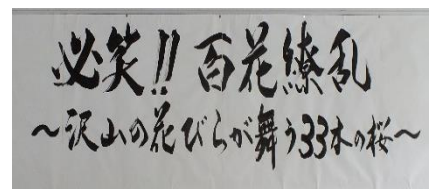 必笑!! 百花繚乱
〜沢山の花びらが舞う33本の桜〜